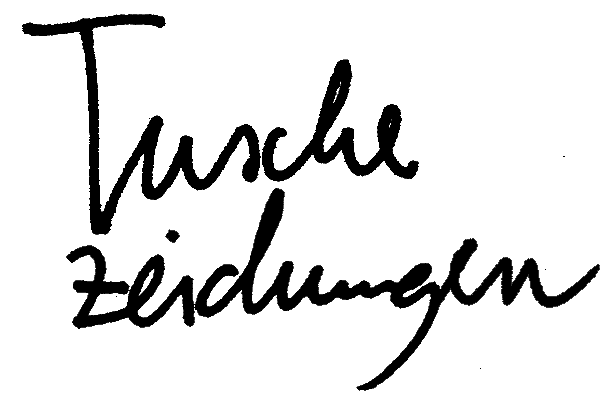 Tusche
zeichnungen